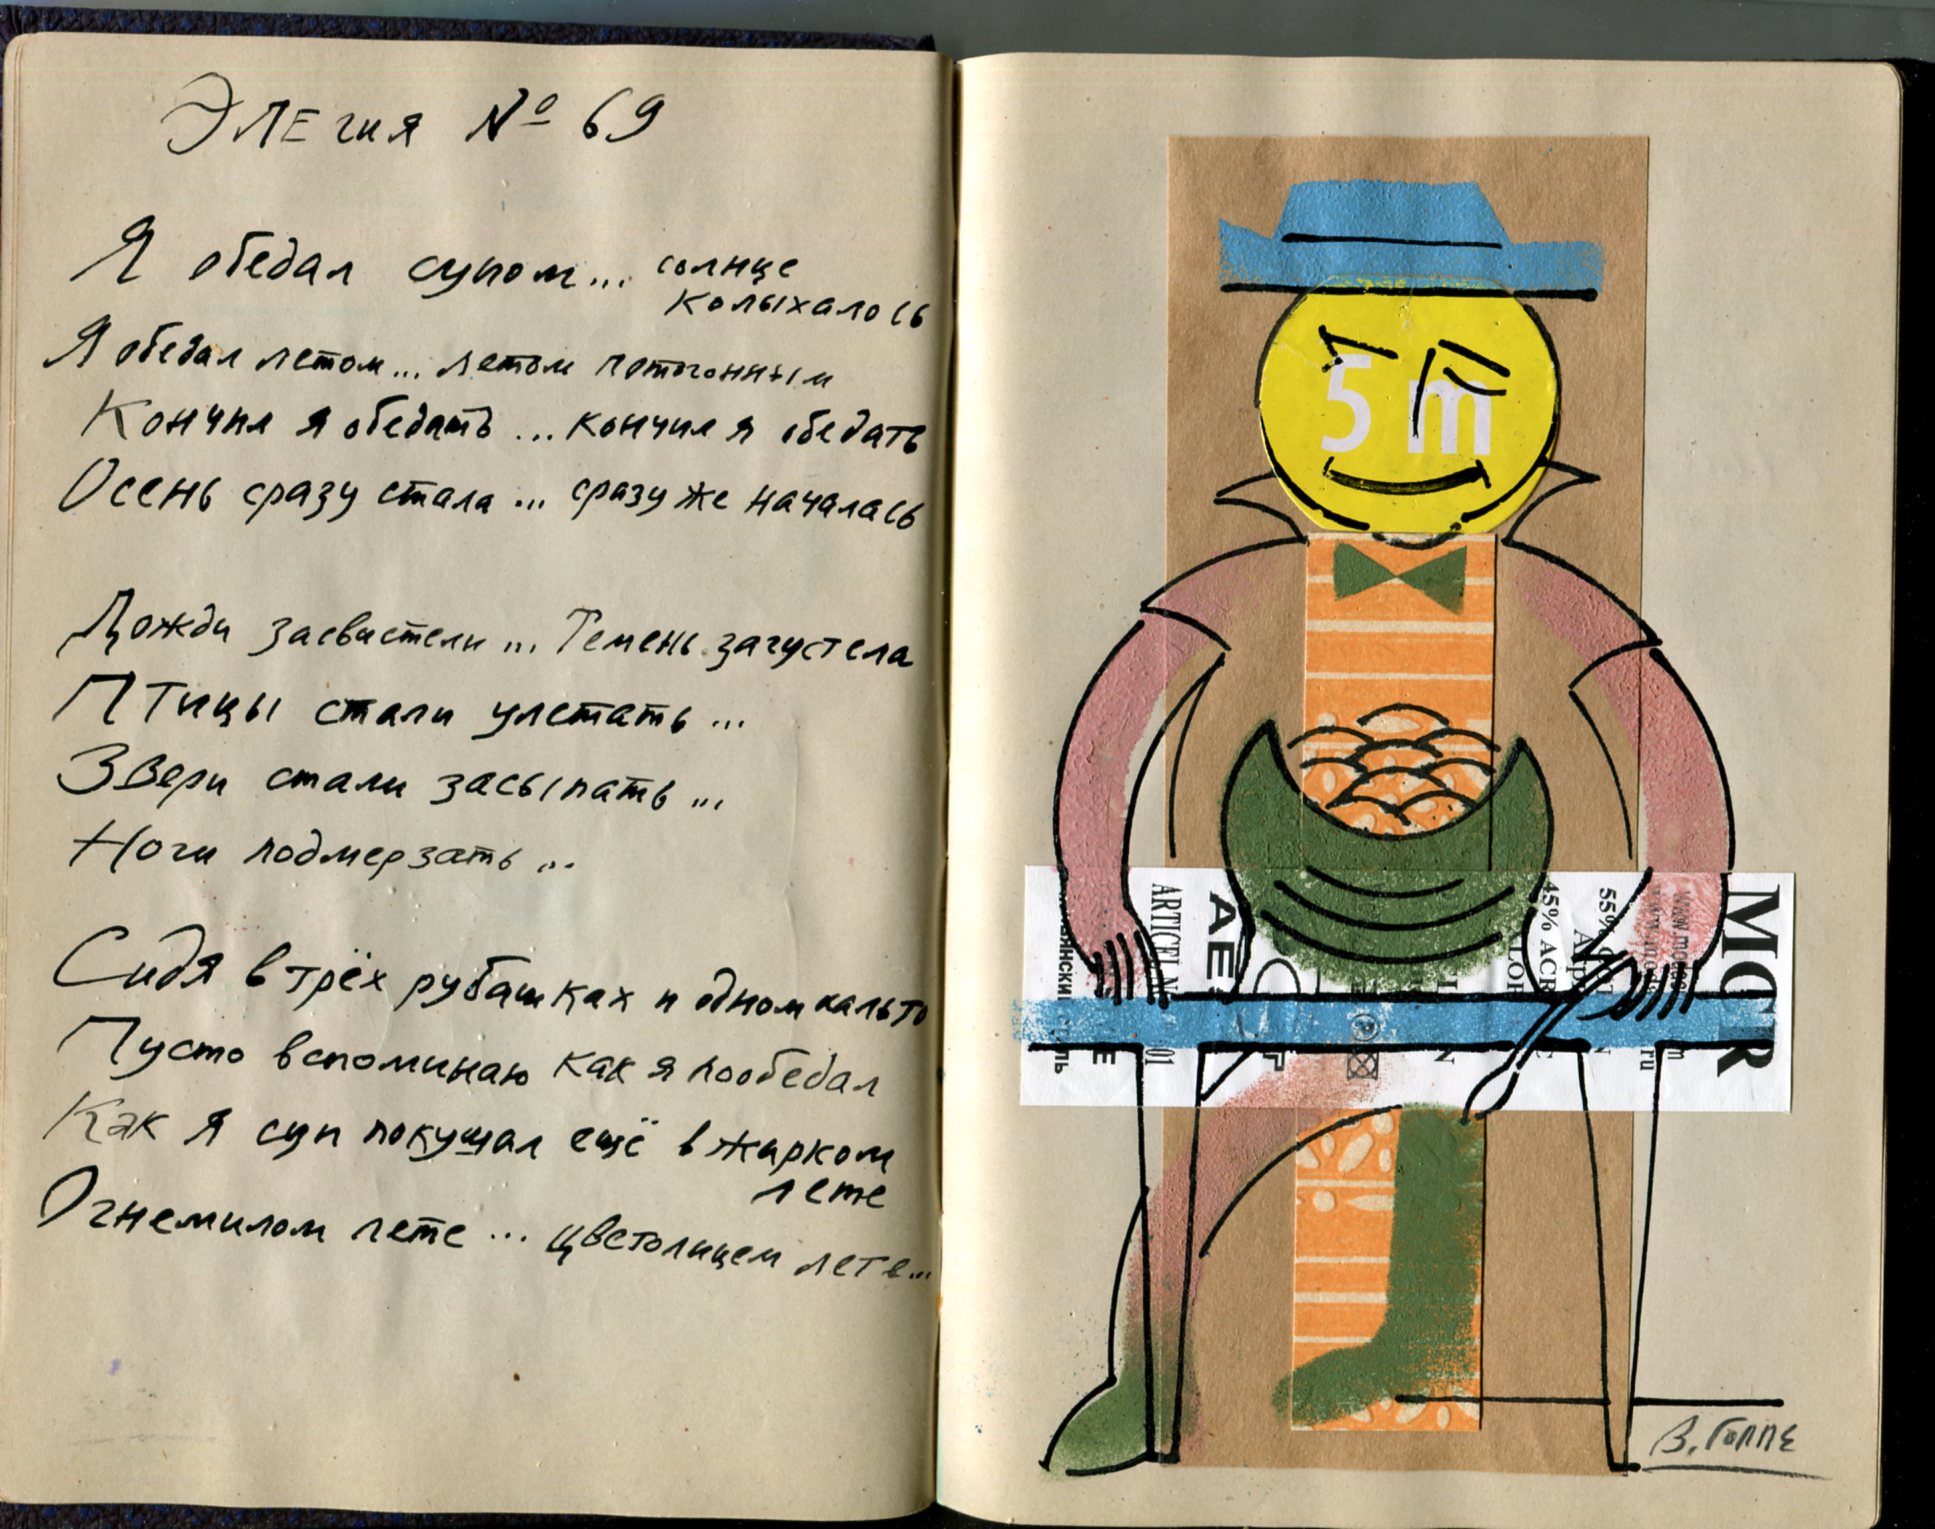 Элегия № 69
Я обедал супом... солнце
колыхалось
Я обедал летом... летом потогонным
Кончил я обедать... кончил я обедать
Осень сразу стала... сразу же началась
Дожди засвистели... Темень загустела
Птицы стали улетать...
Звери стали засыпать...
Ночи подмерзать...
Сидя в трёх рубашках и одном пальто
Пусто вспоминаю как я пообедал
Как я суп покушал ещё в жарком
лете
Огнемилом лете... цветолицем лете...
5 m
MCR
ARTICEL N
45% ACR
55%
В. Гоппе